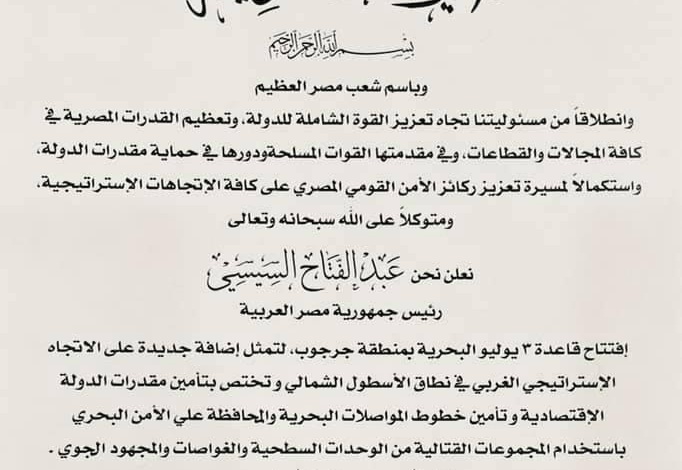 بسم الله الرحمن الرحيم
وباسم شعب مصر العظيم
وانطلاقاً من مسئوليتنا تجاه تعزيز القوة الشاملة للدولة، وتعظيم القدرات المصرية في
كافة المجالات والقطاعات، وفي مقدمتها القوات المسلحة ودورها في حماية مقدرات الدولة،
واستكمالاً لمسيرة تعزيز ركائز الأمن القومي المصري على كافة الإتجاهات الإستراتيجية،
ومتوكلاً على الله سبحانه وتعالى
نعلن نحن عبد الفتاح السيسي
رئيس جمهورية مصر العربية
إفتتاح قاعدة ٣ يوليو البحرية بمنطقة جرجوب، لتمثل إضافة جديدة على الاتجاه
الإستراتيجي الغربي في نطاق الأسطول الشمالي و تختص بتأمين مقدرات الدولة
الإقتصادية و تأمين خطوط المواصلات البحرية والمحافظة علي الأمن البحري
باستخدام المجموعات القتالية من الوحدات السطحية والغواصات والمجهود الجوي .